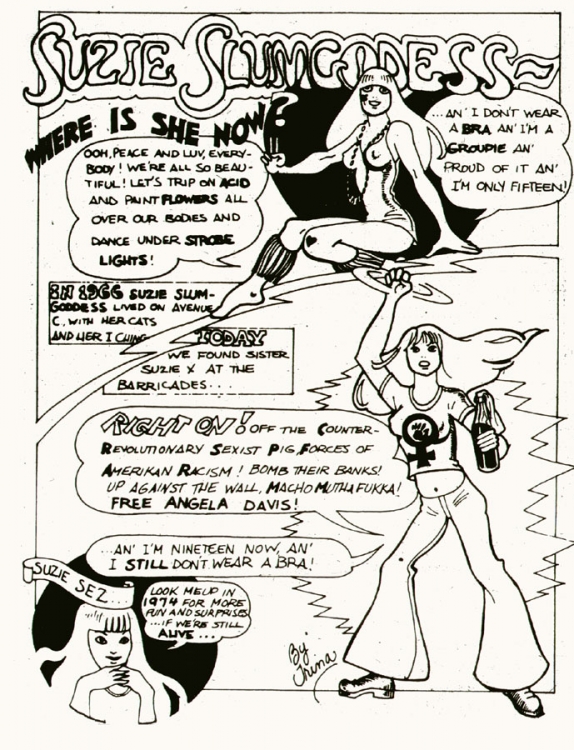 SUZIE SLUMGODESS-
WHERE IS SHE NOW?
OOH, PEACE AND LUV, EVERY-
BODY! WE'RE ALL SO BEAU-
TIFUL! LET'S TRIP ON ACID
AND PAINT FLOWERS ALL
OVER OUR BODIES AND
DANCE UNDER STROBE
LIGHTS!
...AN' I DON'T WEAR
A BRA AN' I'M A
GROUPIE AN'
PROUD OF IT AN'
I'M ONLY FIFTEEN!
IN 1966 SUZIE SLUM-
GODDESS LIVED ON AVENUE
C. WITH HER CATS
AND HER I CHING
TODAY
WE FOUND SISTER
SUZIE X AT THE
BARRICADES...
RIGHT ON! OFF THE COUNTER-
REVOLUTIONARY SEXIST PIG FORCES OF
AMERIKAN RACISM! BOMB THEIR BANKS!
UP AGAINST THE WALL, MACHO MUTHAFUKKA!
FREE ANGELA DAVIS!
...AN' I'M NINETEEN NOW, AN'
I STILL DON'T WEAR A BRA!
SUZIE SEZ...
LOOK ME UP IN
1974 FOR MORE
FUN AND SURPRISES
...IF WE'RE STILL
ALIVE...
By
Trina